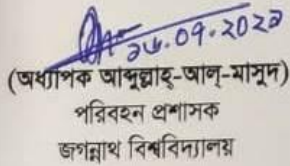 ২৬.০৭.২০২২
(অধ্যাপক আব্দুল্লাহ্-আল্-মাসুদ)
পরিবহন প্রশাসক
জগন্নাথ বিশ্ববিদ্যালয়